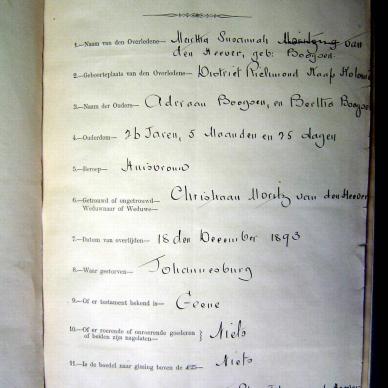 1.—Naam van den Overledene— Martha Susannah van
den Heever, geb: Booysen.
2.—Geboorteplaats van den Overledene— District Richmond Kaap Kolonie
3.—Naam der Ouders— Adriaan Booysen, en Bertha Booysen
4.—Ouderdom— 26 Jaren, 5 Maanden en 25 dagen
5.—Beroep— Huisvrouw
6.—Getrouwd of ongetrouwd— Christiaan Moritz van den Heever
Weduwnaar of Weduwe—
7.—Datum van overlijden— 18 den December 1893
8.—Waar gestorven— Johannesburg
9.—Of er testament bekend is— Geene
10.—Of er roerende of onroerende goederen
of beiden zijn nagelaten— } Niets
11.—Is de boedel naar gissing boven de Niets